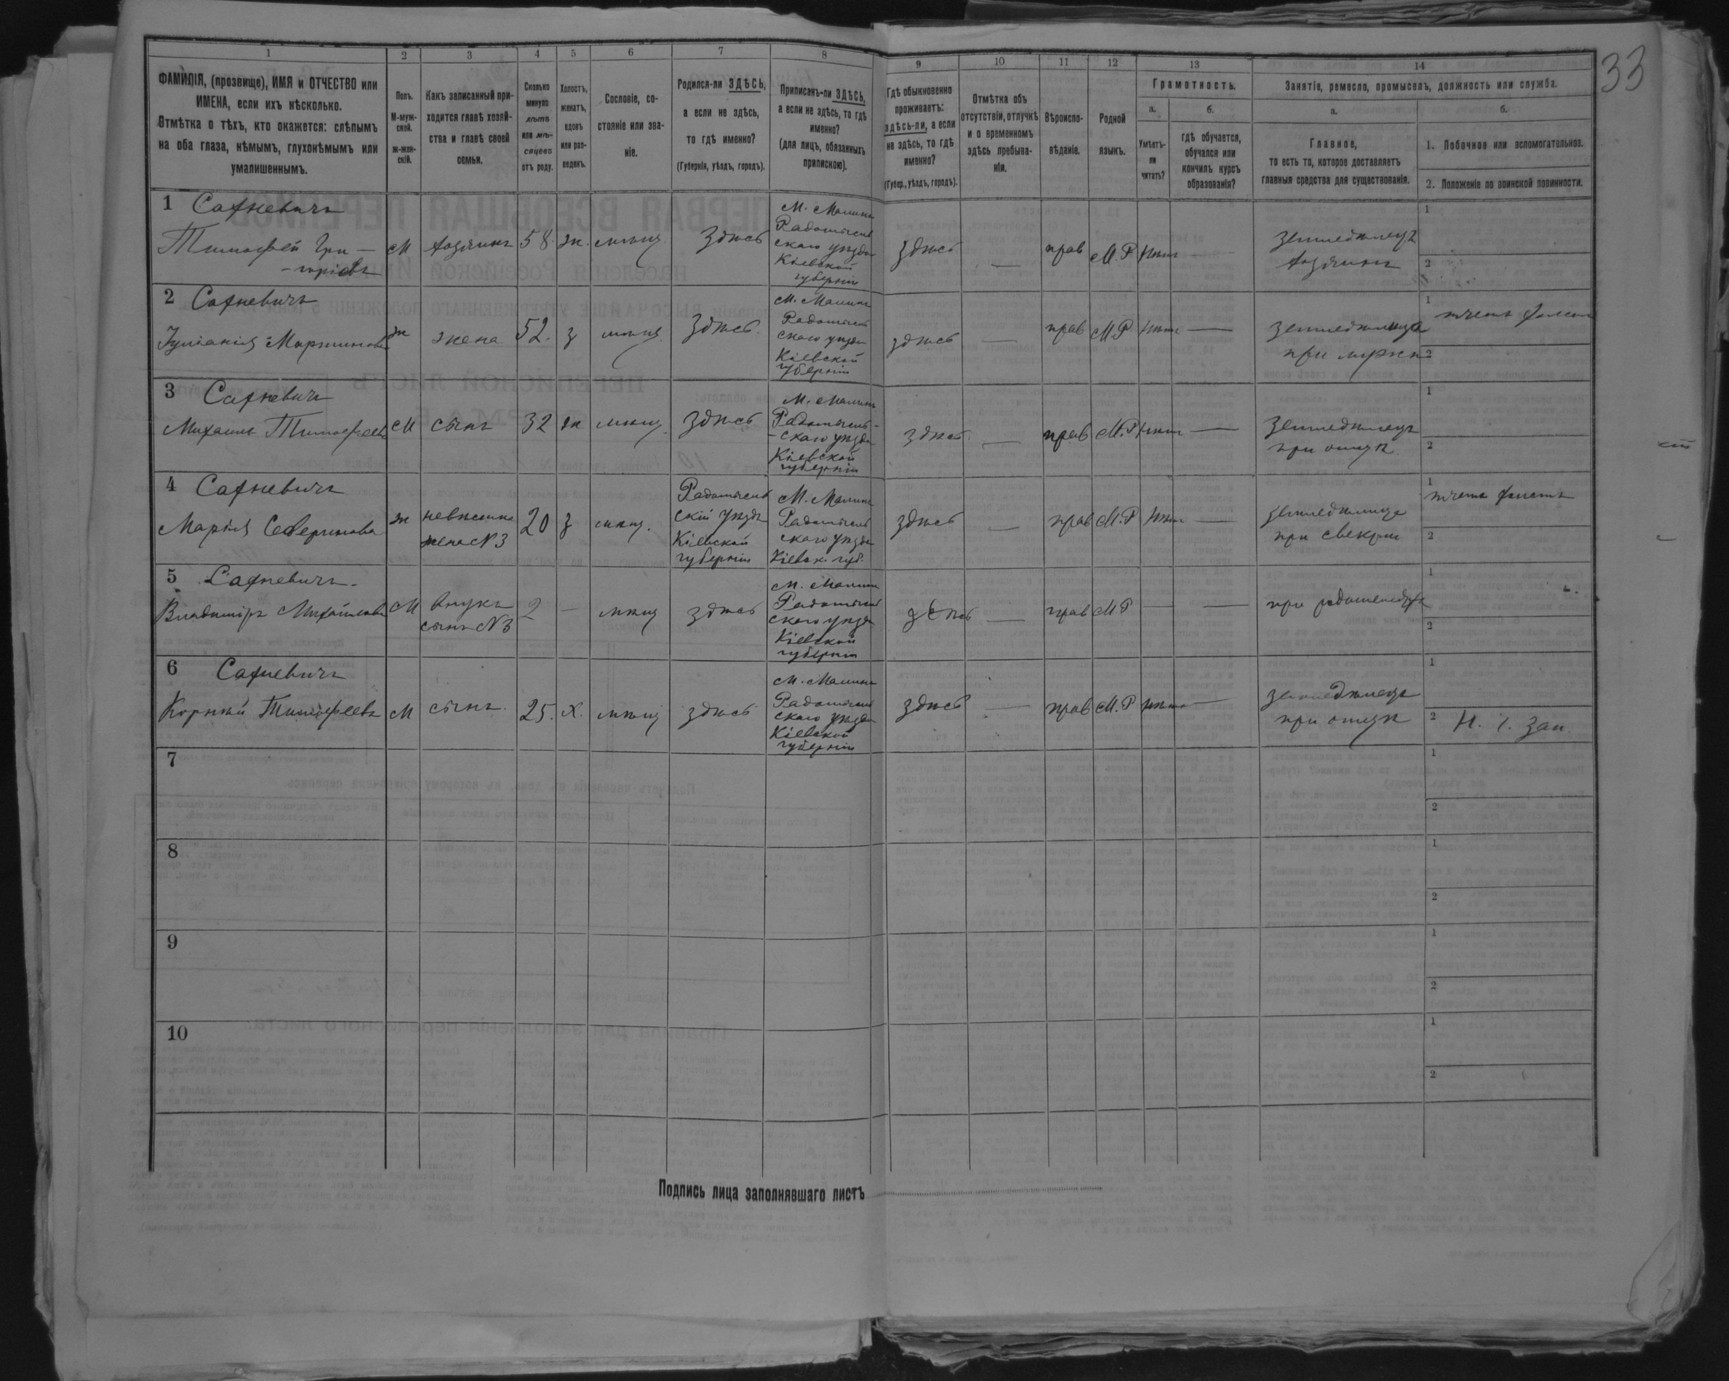 33
1 2 3 4 5 6 7 8 9 10 11 12 13 14
ФАМИЛІЯ, (прозвище), ИМЯ и ОТЧЕСТВО или
ИМЕНА, если ихъ нѣсколько.
Отмѣтка о тѣхъ, кто окажется: слѣпымъ
на оба глаза, нѣмымъ, глухонѣмымъ или
умалишеннымъ.
Полъ.
М-муж-
ской.
Ж-жен-
скій.
Какъ записанный при-
ходится главѣ хозяй-
ства и главѣ своей
семьи.
Сколько
минуло
лѣтъ
или мѣ-
сяцевъ
отъ роду.
Холостъ,
женатъ,
вдовъ
или раз-
веденъ.
Сословіе, со-
стояніе или зва-
ніе.
Родился-ли ЗДѢСЬ,
а если не здѣсь,
то гдѣ именно?
(Губернія, уѣздъ, городъ).
Приписанъ-ли ЗДѢСЬ,
а если не здѣсь, то гдѣ
именно?
(для лицъ, обязанныхъ
припискою).
Гдѣ обыкновенно
проживаетъ:
здѣсь-ли, а если
не здѣсь, то гдѣ
именно?
(Губер., уѣздъ, городъ).
Отмѣтка объ
отсутствіи, отлучкѣ
и о временномъ
здѣсь пребыва-
ніи.
Вѣроиспо-
вѣданіе.
Родной
языкъ.
Грамотность.
а.
Умѣетъ-
ли
читать?
б.
гдѣ обучается,
обучался или
кончилъ курсъ
образованія?
Занятіе, ремесло, промыселъ, должность или служба.
а.
Главное,
то есть то, которое доставляетъ
главныя средства для существованія.
б.
1. Побочное или вспомогательное.
2. Положеніе по воинской повинности.
1 Сахневичъ
Тимофей Гри-
-горіевъ
М хозяинъ 58 ж. мѣщ здѣсь
М. Малина
Радомысль
скаго уѣзда
Кіевской
губерніи
здѣсь — прав М Р нѣтъ —
земледѣлецъ
хозяинъ
1
2
2 Сахневичъ
Іуліанія Мартинова
ж жена 52. з мѣщ здѣсь
М. Малина
Радомысль
скаго уѣзда
Кіевской
губерніи
здѣсь — прав М Р нѣтъ —
земледѣлица
при мужѣ
1
2
3 Сахневичъ
Михаилъ Тимофеевъ
М сынъ 32 ж мѣщ. здѣсь
М. Малина
Радомысль-
скаго уѣзда
Кіевской
губерніи
здѣсь — прав М.Р нѣтъ —
земледѣлецъ
при отцѣ
1
2
4 Сахневичъ
Марія Северинова
ж невѣстка
жена №3
20 з мѣщ.
Радомысль
скій уѣздъ
Кіевской
губерніи
М. Малина
Радомысль
скаго уѣзда
Кіевск. губ.
здѣсь — прав М.Р нѣтъ —
земледѣлица
при свекрѣ
1
2
5 Сахневичъ.
Владиміръ Михайловъ
М внукъ
сынъ №3
2 — мѣщ здѣсь
М. Малина
Радомысль
скаго уѣзда
Кіевской
губерніи
здѣсь — прав М Р — —
при родителяхъ
1
2
6 Сахневичъ
Корнѣй Тимофеевъ
М сынъ. 25. х. мѣщ здѣсь
М. Малина
Радомысль
скаго уѣзда
Кіевской
губерніи
здѣсь — прав М.Р нѣтъ —
земледѣлецъ
при отцѣ
1
2
7
1
2
8
1
2
9
1
2
10
1
2
Подпись лица заполнявшаго листъ